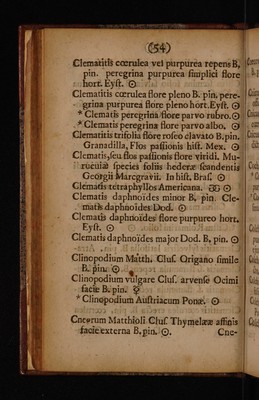 (54)
Clematitis cœrulea vel purpurea repens B.
pin. peregrina purpurea ſimplici flore
hort. Eyſt. ☉
Clematitis cœrulea flore pleno B. pin. pere-
grina purpurea flore pleno hort. Eyſt. ☉
* Clematis peregrina flore parvo rubro. ☉
* Clematis peregrina flore parvo albo. ☉
Clematitis trifolia flore roſeo clavato B. pin.
Granadilla, Flos paſſionis hiſt. Mex. ☉
Clematis, ſeu flos paſſionis flore viridi. Mu-
rucuiæ ſpecies foliis hederæ ſcandentis
Georgii Marcgravii. In hiſt. Braſ. ☉
Clematis tetraphyllos Americana. ☉
Clematis daphnoides minor B. pin. Cle-
matis daphnoïdes Dod. ☉
Clematis daphnoïdes flore purpureo hort.
Eyſt. ☉
Clematis daphnoïdes major Dod. B. pin. ☉
Clinopodium Matth. Cluſ. Origano ſimile
B. pin. ☉
Clinopodium vulgare Cluſ. arvenſe Ocimi
facie B. pin. ☿
* Clinopodium Auſtriacum Ponæ. ☉
Cneorum Matthioli Cluſ. Thymelææ affinis
facie externa B. pin. ☉.
Cne-